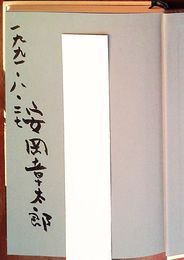 一九九一・八・二七
安岡章太郎